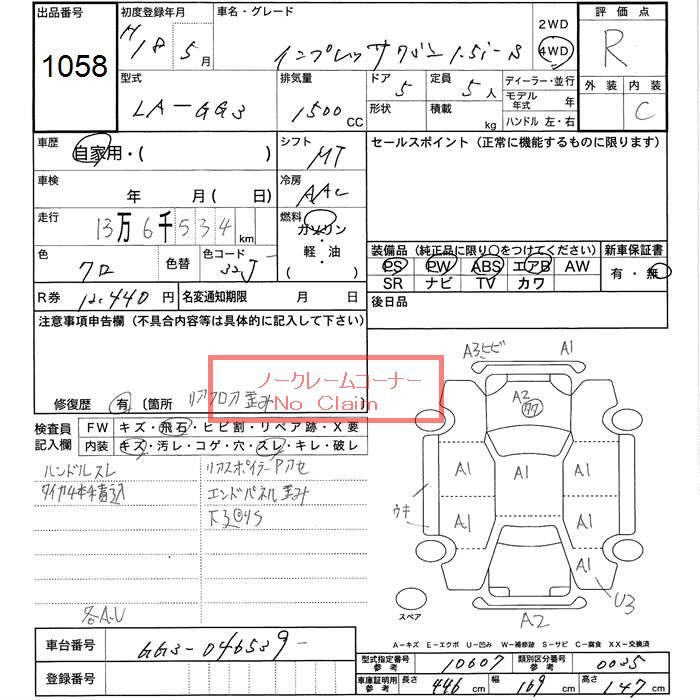 出品番号
1058
初度登録年月
H18 5月
車名・グレード
インプレッサワゴン 1.5i-S
2WD
4WD
評価点
R
外装
内装
C
型式
LA-GG3
排気量
1500 CC
ドア
5
形状
定員
5人
積載
kg
ディーラー・並行
モデル年式 年
ハンドル 左・右
車歴
自家用・( )
シフト
MT
セールスポイント (正常に機能するものに限ります)
車検
年 月( 日)
冷房
AAC
走行
13万6千534 km
燃料
ガソリン
・
軽・油
( )
色
クロ
色替
色コード
32J
装備品 (純正品に限り○をつけてください)
PS PW ABS エアB AW
SR ナビ TV カワ
新車保証書
有・無
R券
12,440円
名変通知期限 月 日
後日品
注意事項申告欄 (不具合内容等は具体的に記入して下さい)
ノークレームコーナー
No Claim
修復歴 有 〔箇所 リアフロア歪み
検査員
記入欄
FW キズ・飛石・ヒビ割・リペア跡・X要
内装 キズ・汚レ・コゲ・穴・スレ・キレ・破レ
ハンドルスレ
タイヤ4本積込
リアスポイラーアカセ
エンドパネル歪み
下3
各A.U
A3ヒビ A1
A2
A1 A1 A1
ウキ
A1 A1
A1
U3
A2
スペア
A-キズ E-エクボ U-凹み W-補修跡 S-サビ C-腐食 XX-交換済
車台番号
GG3-046539-
登録番号
型式指定番号
参考
10607
類別区分番号
参考
0035
車庫証明用
参考
長さ 446 cm
幅 169 cm
高さ 147 cm